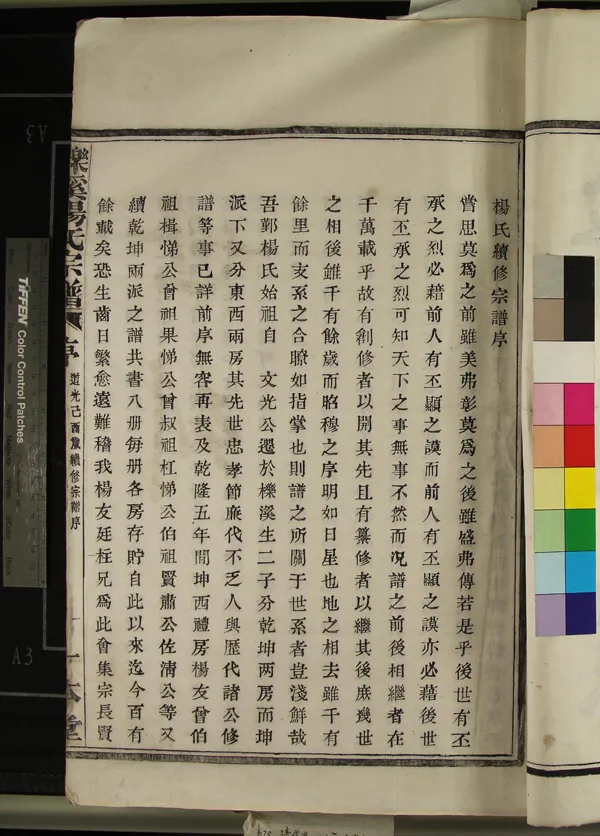 楊氏續修宗譜序
嘗思莫爲之前雖美弗彰莫爲之後雖盛弗傳若是乎後世有丕
承之烈必藉前人有丕顯之謨而前人有丕顯之謨亦必藉後世
有丕承之烈可知天下之事無事不然而况譜之前後相繼者在
千萬載乎故有創修者以開其先且有纂修者以繼其後庶幾世
之相後雖千有餘歲而昭穆之序明如日星也地之相去雖千有
餘里而支系之合瞭如指掌也則譜之所關于世系者豈淺鮮哉
吾鄞楊氏始祖自 文光公遷於櫟溪生二子分乾坤两房而坤
派下又分東西兩房其先世忠孝節廉代不乏人與歷代諸公修
譜等事已詳前序無容再表及乾隆五年間坤西禮房楊友曾伯
祖楫悌公曾祖果悌公曾叔祖杠悌公伯祖賢肅公佐淸公等又
續乾坤兩派之譜共書八册每册各房存貯自此以來迄今百有
餘載矣恐生齒日繁愈遠難稽我楊友廷枉兄爲此會集宗長賢
櫟溪楊氏宗譜 序 道光己酉歲續修宗譜序 十一 本堂
TIFFEN Color Control Patches
A3
A3